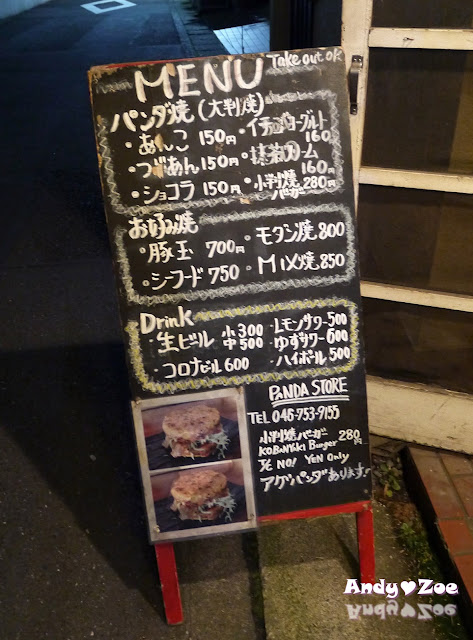 MENU Take out ok
パンダ焼 (大判焼)
・あんこ 150円 ・イチゴヨーグルト 160
・つぶあん 150円 ・抹茶クリーム 160円
・ショコラ 150円 ・小判焼バーガー 280円
お好み焼
・豚玉 700円 ・モダン焼 800
・シーフード 750 ・MIX焼 850
Drink
・生ビール 小300 中500 ・レモンサワー 500
・コロナビール 600 ・ゆずサワー 600
・ハイボール 500
PANDA STORE
TEL 046-753-9155
小判焼バーガー 280円
KOBANYAKI Burger
NO! YEN Only
アゲパンダあります!
Andy♥Zoe